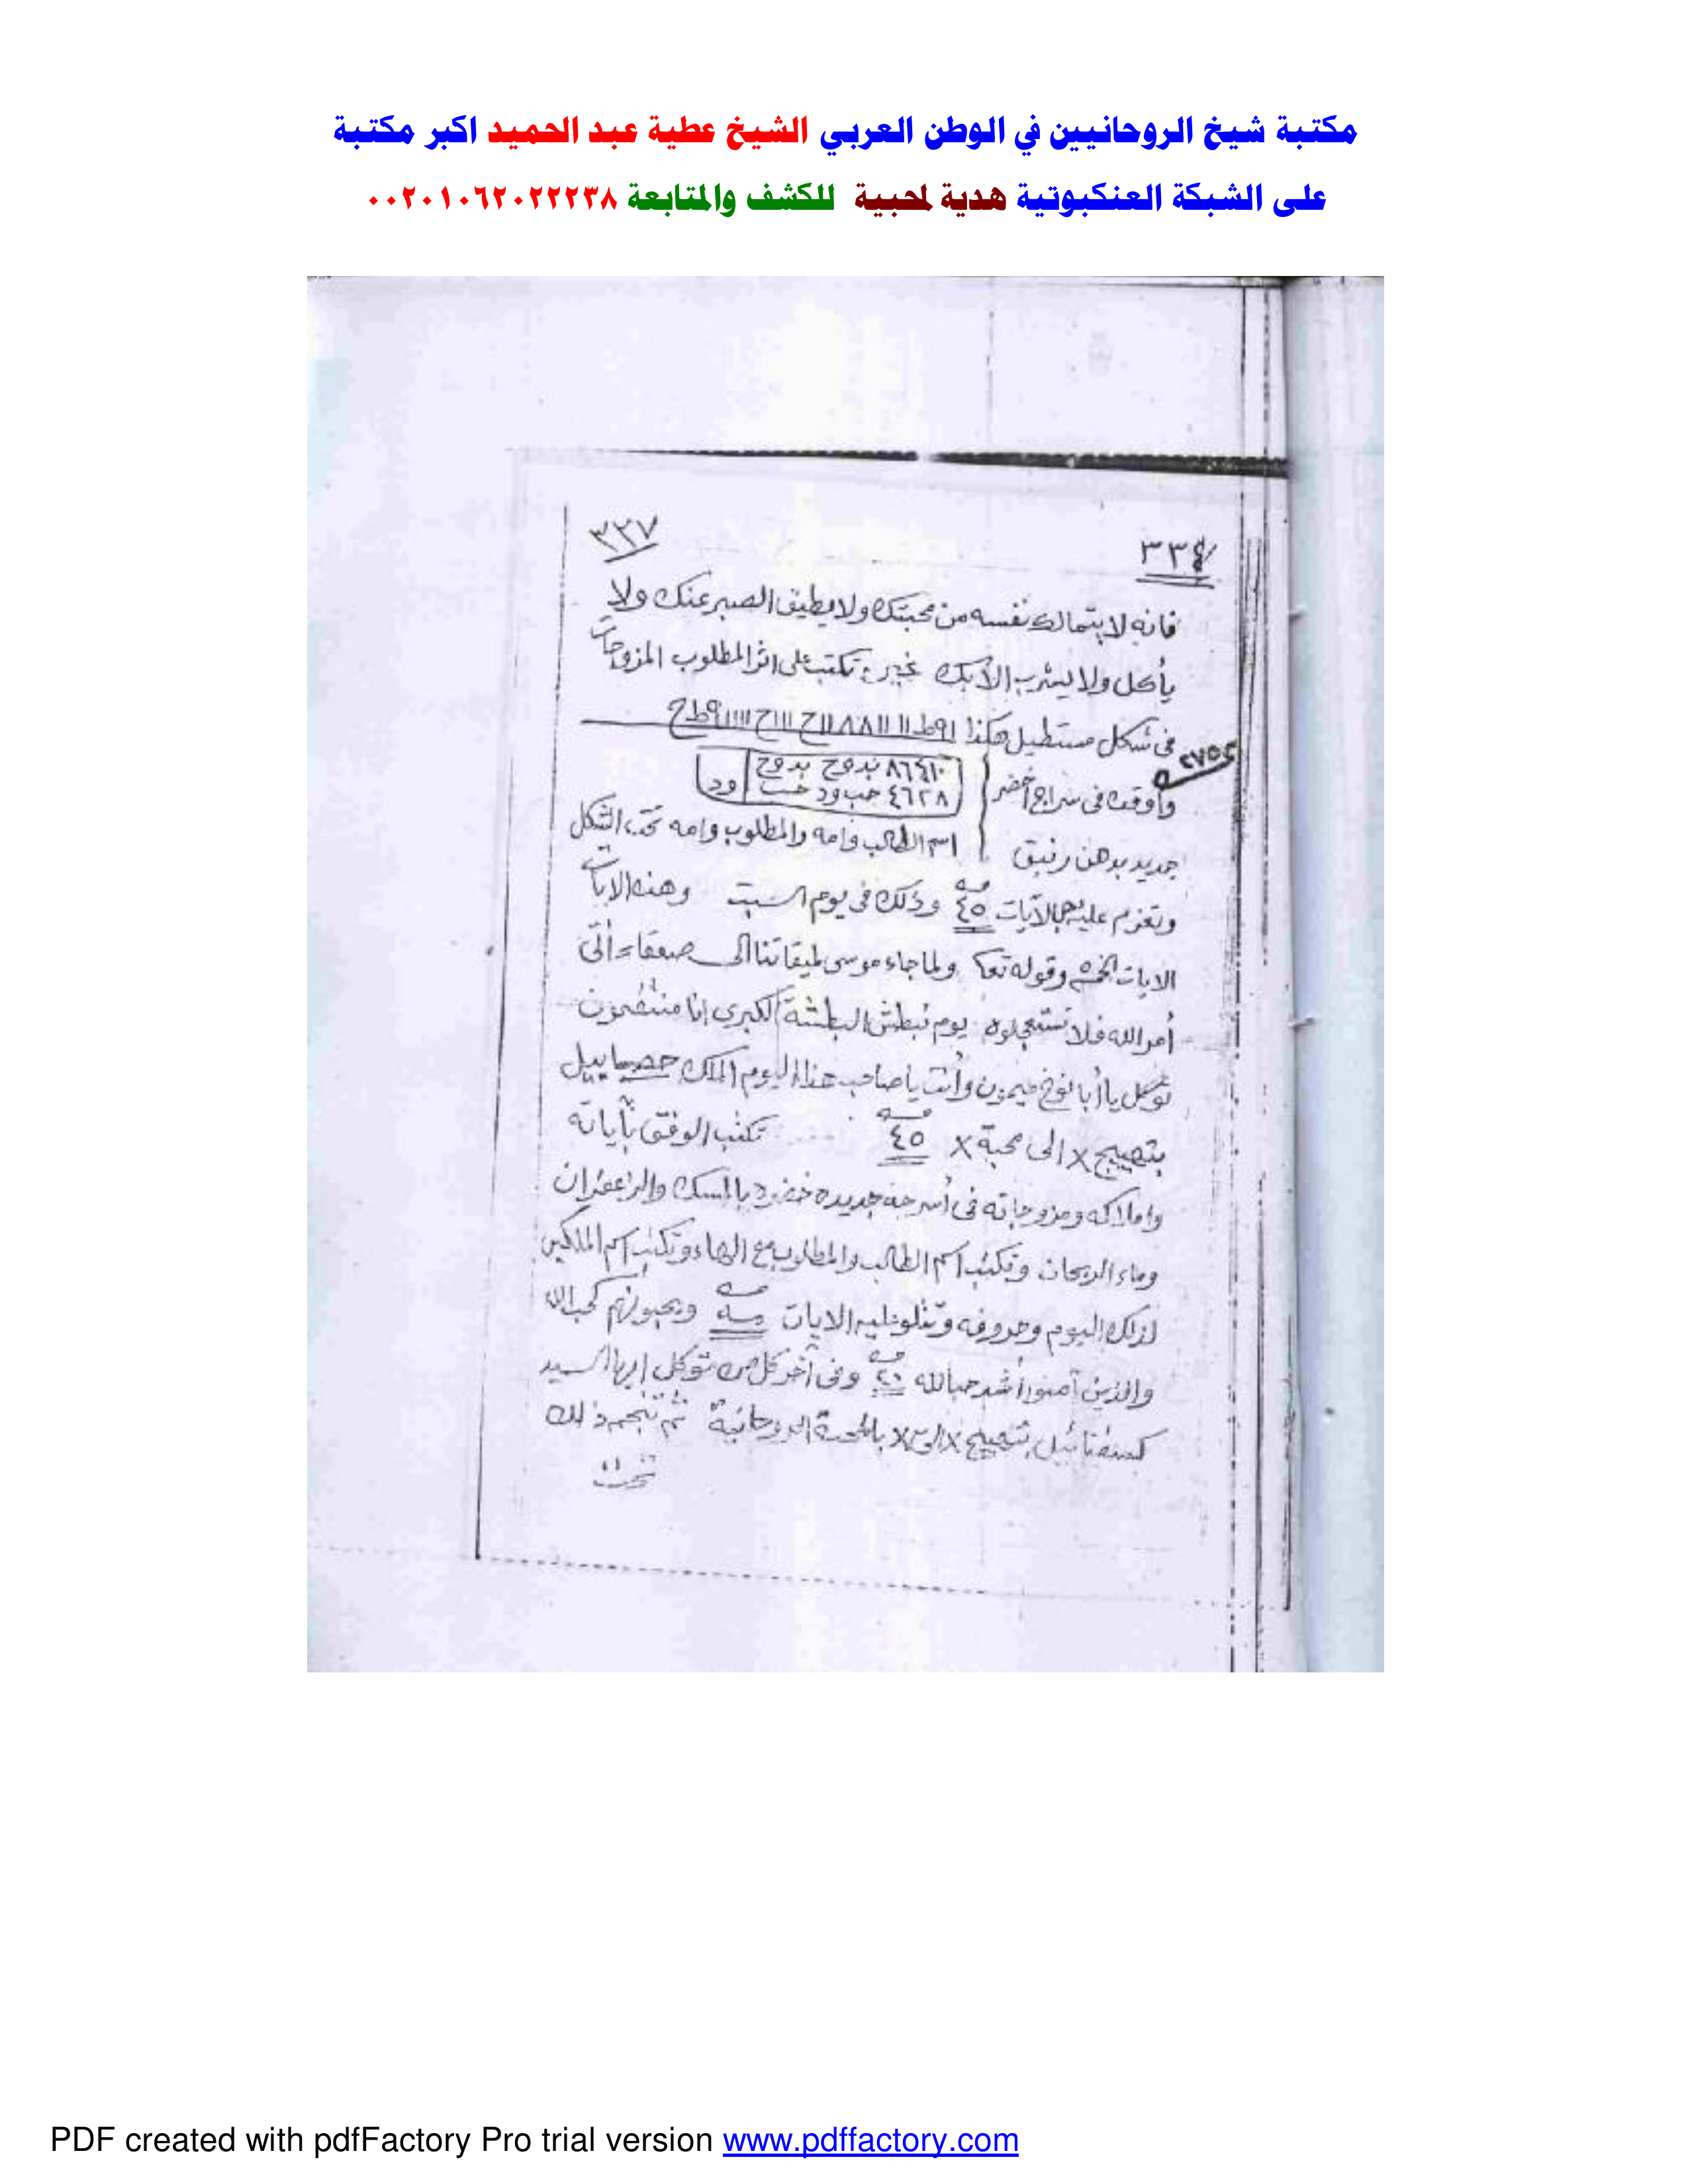 مكتبة شيخ الروحانيين في الوطن العربي الشيخ عطية عبد الحميد اكبر مكتبة
على الشبكة العنكبوتية هدية لمحبية للكشف والمتابعة ٠٠٢٠١٠٦٢٠٢٢٢٣٨
٣٣٧
فانه لا يتمالك نفسه من محبتك ولا يطيق الصبر عنك ولا
يأكل ولا يشرب الا بك غيره تكتب على اثر المطلوب المزوجات
فى شكل مستطيل هكذا
٢٧٥٤
وأوقده فى سراج أخضر
٨٦٤١٠ بدوح بدوح
٤٦٢٨ حب ود حب ود
جديد بدهن زنبق
اسم الطالب وامه والمطلوب وامه تحت الشكل
وتعزم عليه بالآيات ٤٥ مره وذلك فى يوم السبت وهذه الايات
الايات الخمسه وقوله تعالى ولما جاء موسى لميقاتنا الى صعقا أتى
أمر الله فلا تستعجلوه يوم نبطش البطشة الكبرى انا منتقمون
توكل يا أبا نوخ ميمون وأنت يا صاحب هذا اليوم الملك
بتهييج x الى محبة x ٤٥ مره تكتب الوفق بآياته
واملاكه ومزوجاته فى أسرجه جديده خضر بالمسك والزعفران
وماء الريحان وتكتب اسم الطالب والمطلوب مع الهاء وتكتب اسم الملكين
لذلك اليوم وحروفه وتتلو عليه الايات ويحبونهم كحب الله
والذين آمنوا أشد حبا لله ٢٠ مره وفى آخر كل مره توكل ايها السيد
بتهييج x الى x بالمحبة الروحانية ثم تنجم ذلك
تحت
PDF created with pdfFactory Pro trial version www.pdffactory.com